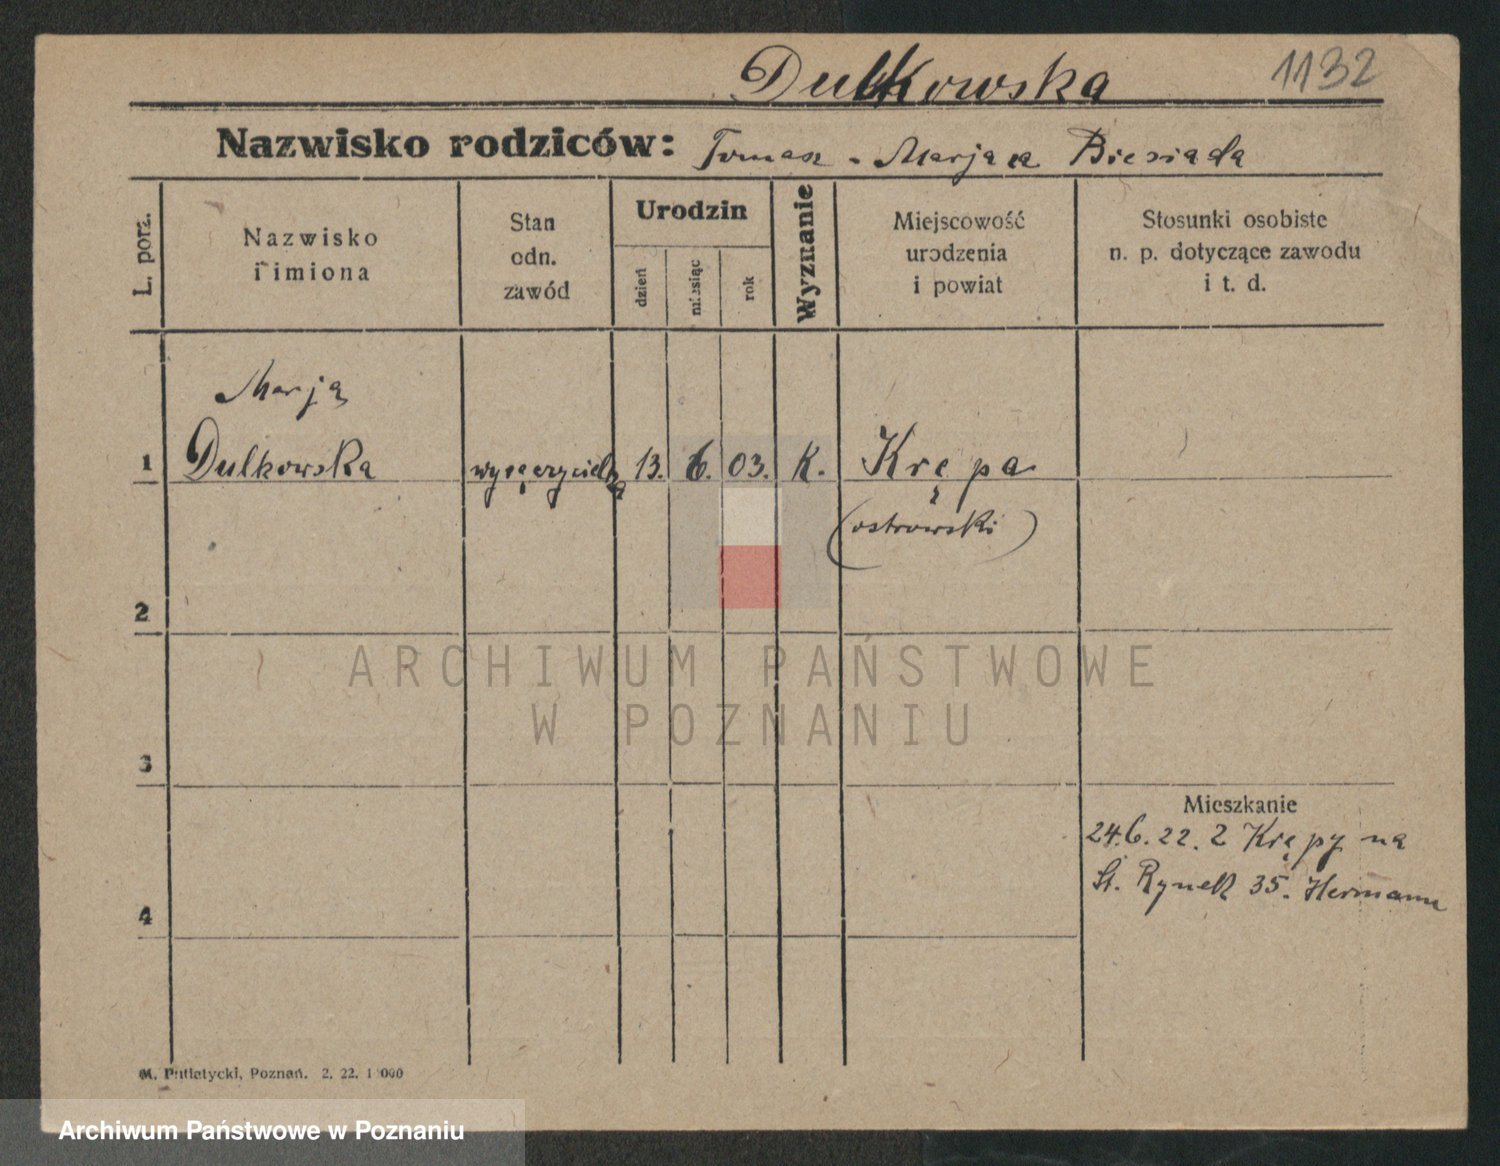 Dulkowska 1132
Nazwisko rodziców: Tomasz - Marja z Biesiada
L. porz.
Nazwisko
i imiona
Stan
odn.
zawód
Urodzin
dzień
miesiąc
rok
Wyznanie
Miejscowość
urodzenia
i powiat
Stosunki osobiste
n. p. dotyczące zawodu
i t. d.
Marja
1 Dulkowska 13. 6. 03. k. Krępa
(ostrowski)
2
ARCHIWUM PAŃSTWOWE
W POZNANIU
3
Mieszkanie
24.6.22. z Krępy na
St. Rynek 35. Hermann
4
M. Putiatycki, Poznań. 2. 22. 1000
Archiwum Państwowe w Poznaniu